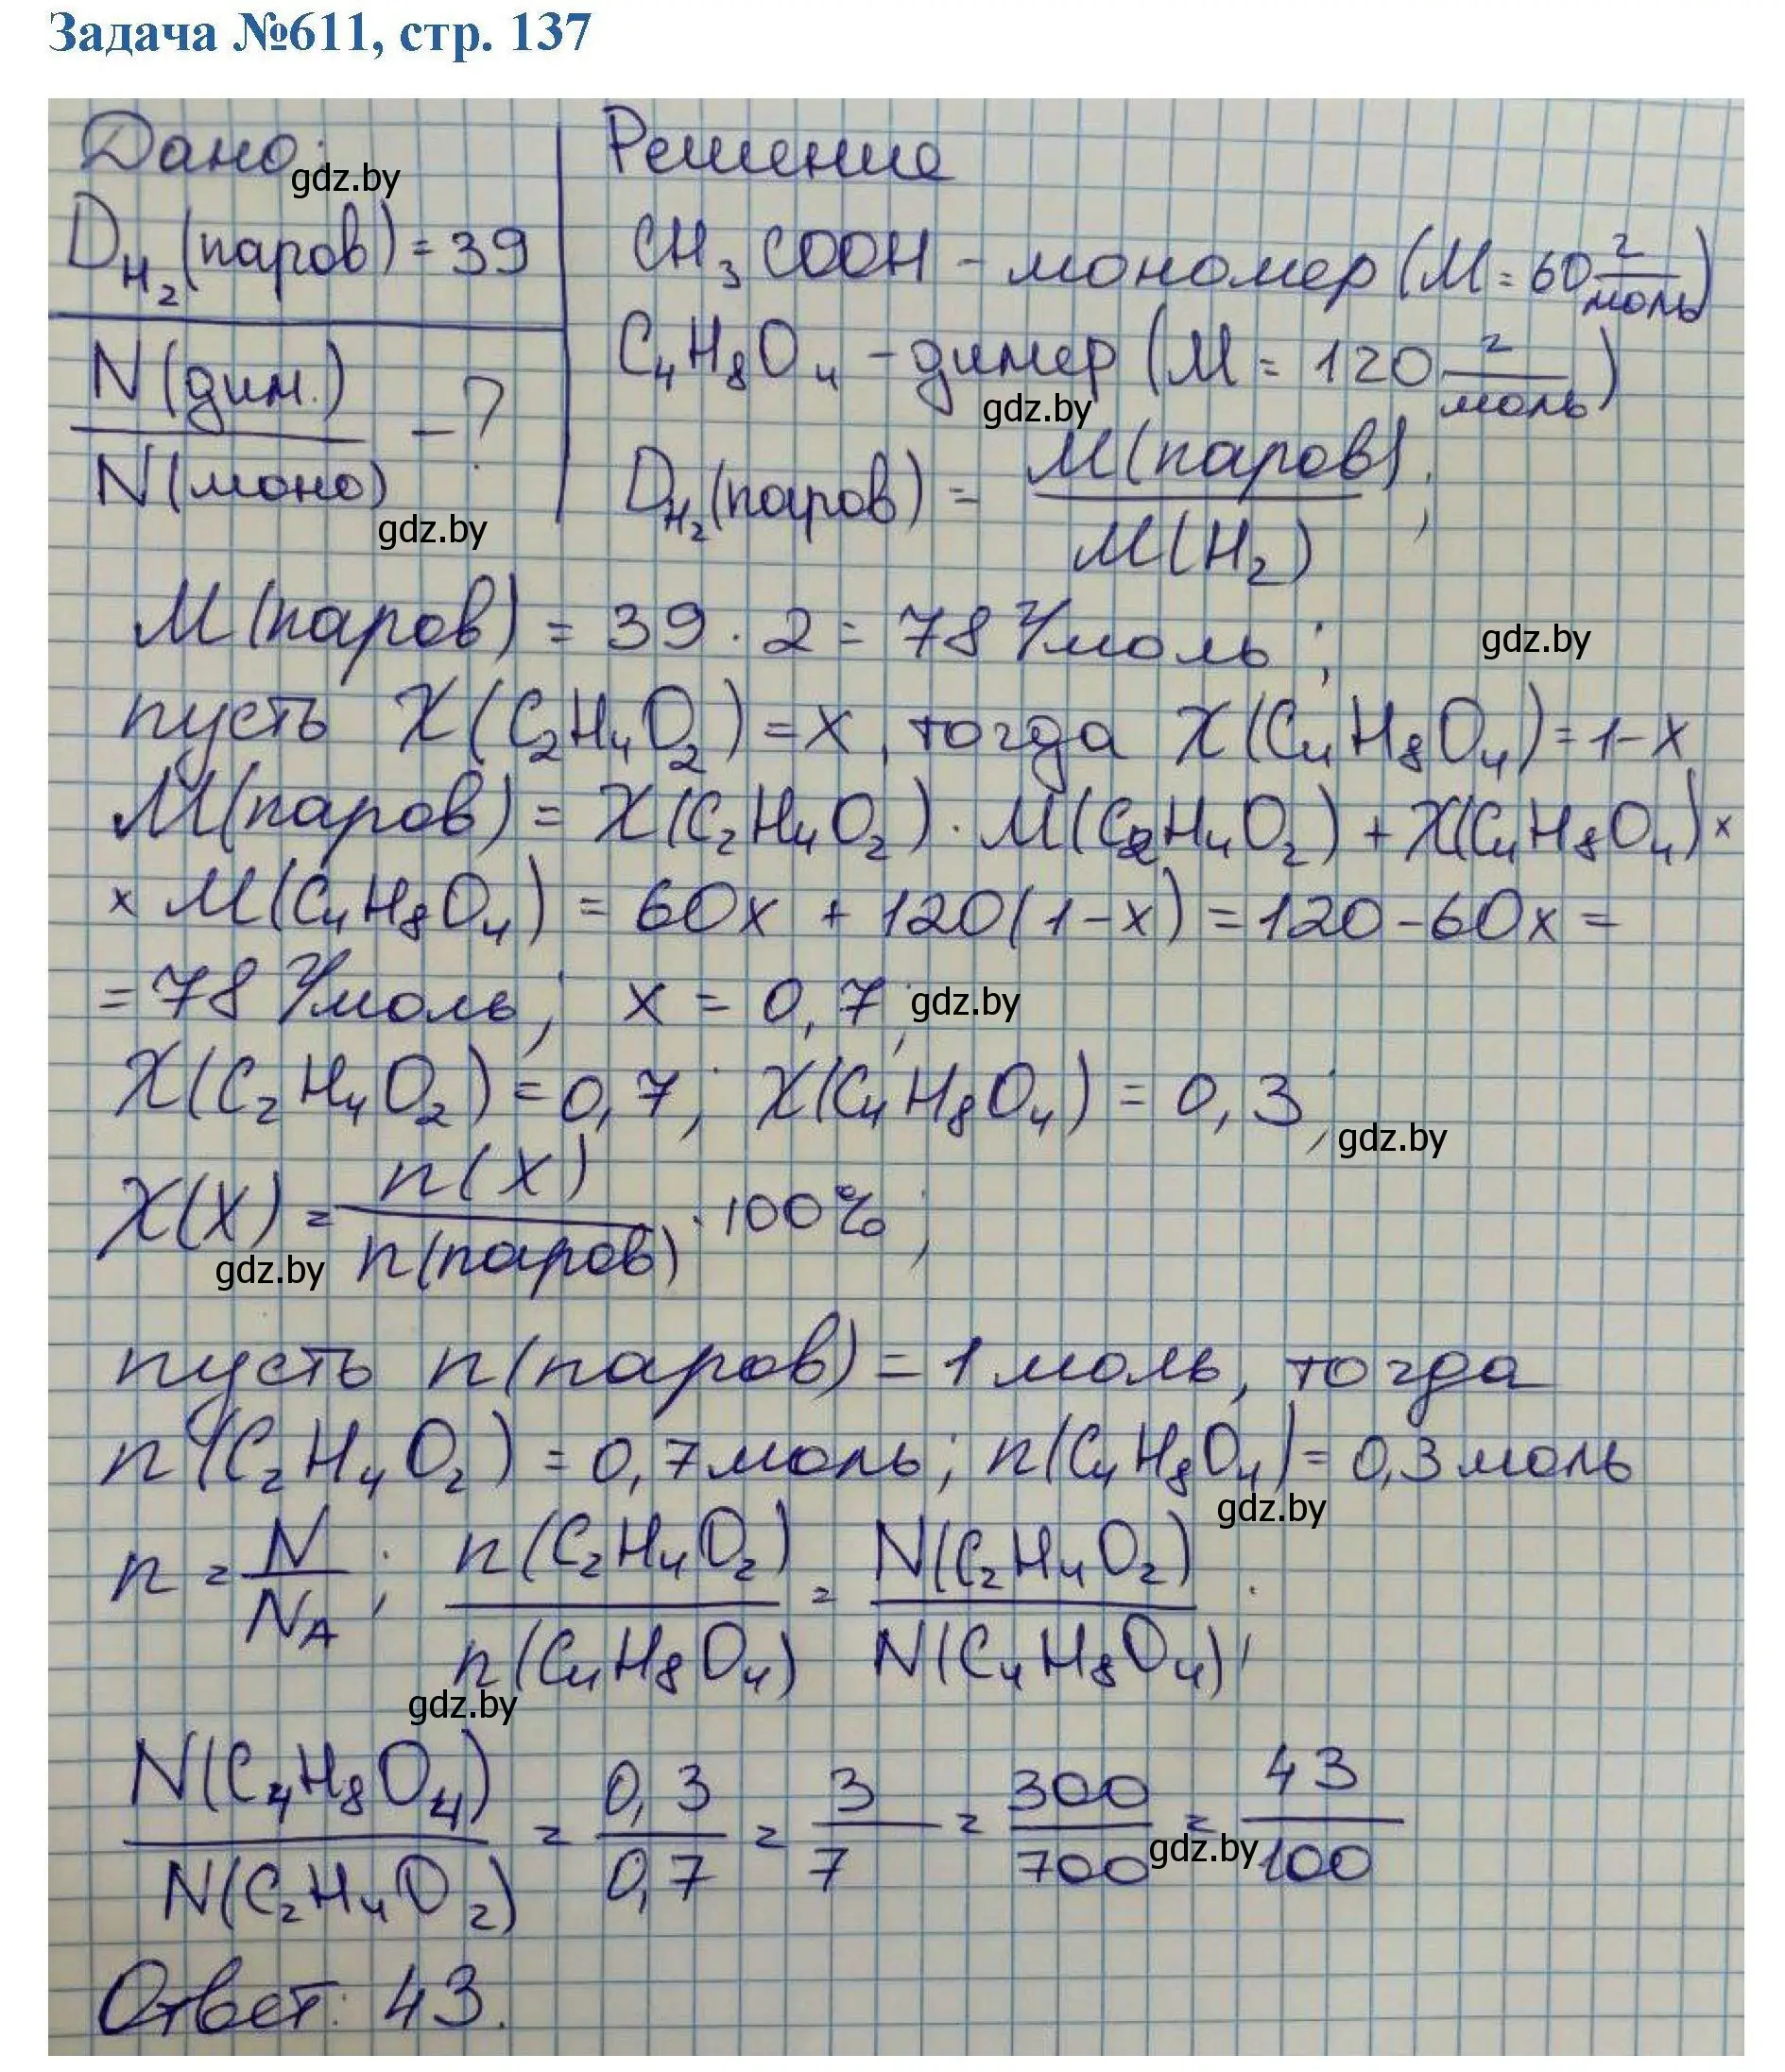 Задача №611, стр. 137
Дано:
gdz.by
D_H₂(паров) = 39
N(дим.)/N(моно) - ?
gdz.by
Решение
CH₃COOH - мономер (M = 60 г/моль)
C₄H₈O₄ - димер (M = 120 г/моль)
gdz.by
D_H₂(паров) = M(паров)/M(H₂);
M(паров) = 39 · 2 = 78 г/моль;
gdz.by
пусть X(C₂H₄O₂) = x, тогда X(C₄H₈O₄) = 1-x
M(паров) = X(C₂H₄O₂) · M(C₂H₄O₂) + X(C₄H₈O₄) ×
× M(C₄H₈O₄) = 60x + 120(1-x) = 120 - 60x =
= 78 г/моль; x = 0,7;
gdz.by
X(C₂H₄O₂) = 0,7; X(C₄H₈O₄) = 0,3;
gdz.by
X(X) = n(X)/n(паров) · 100%;
gdz.by
пусть n(паров) = 1 моль, тогда
n(C₂H₄O₂) = 0,7 моль; n(C₄H₈O₄) = 0,3 моль
gdz.by
n = N/N_A; n(C₂H₄O₂)/n(C₄H₈O₄) = N(C₂H₄O₂)/N(C₄H₈O₄);
gdz.by
N(C₄H₈O₄)/N(C₂H₄O₂) = 0,3/0,7 = 3/7 = 300/700 = 43/100
gdz.by
Ответ: 43.